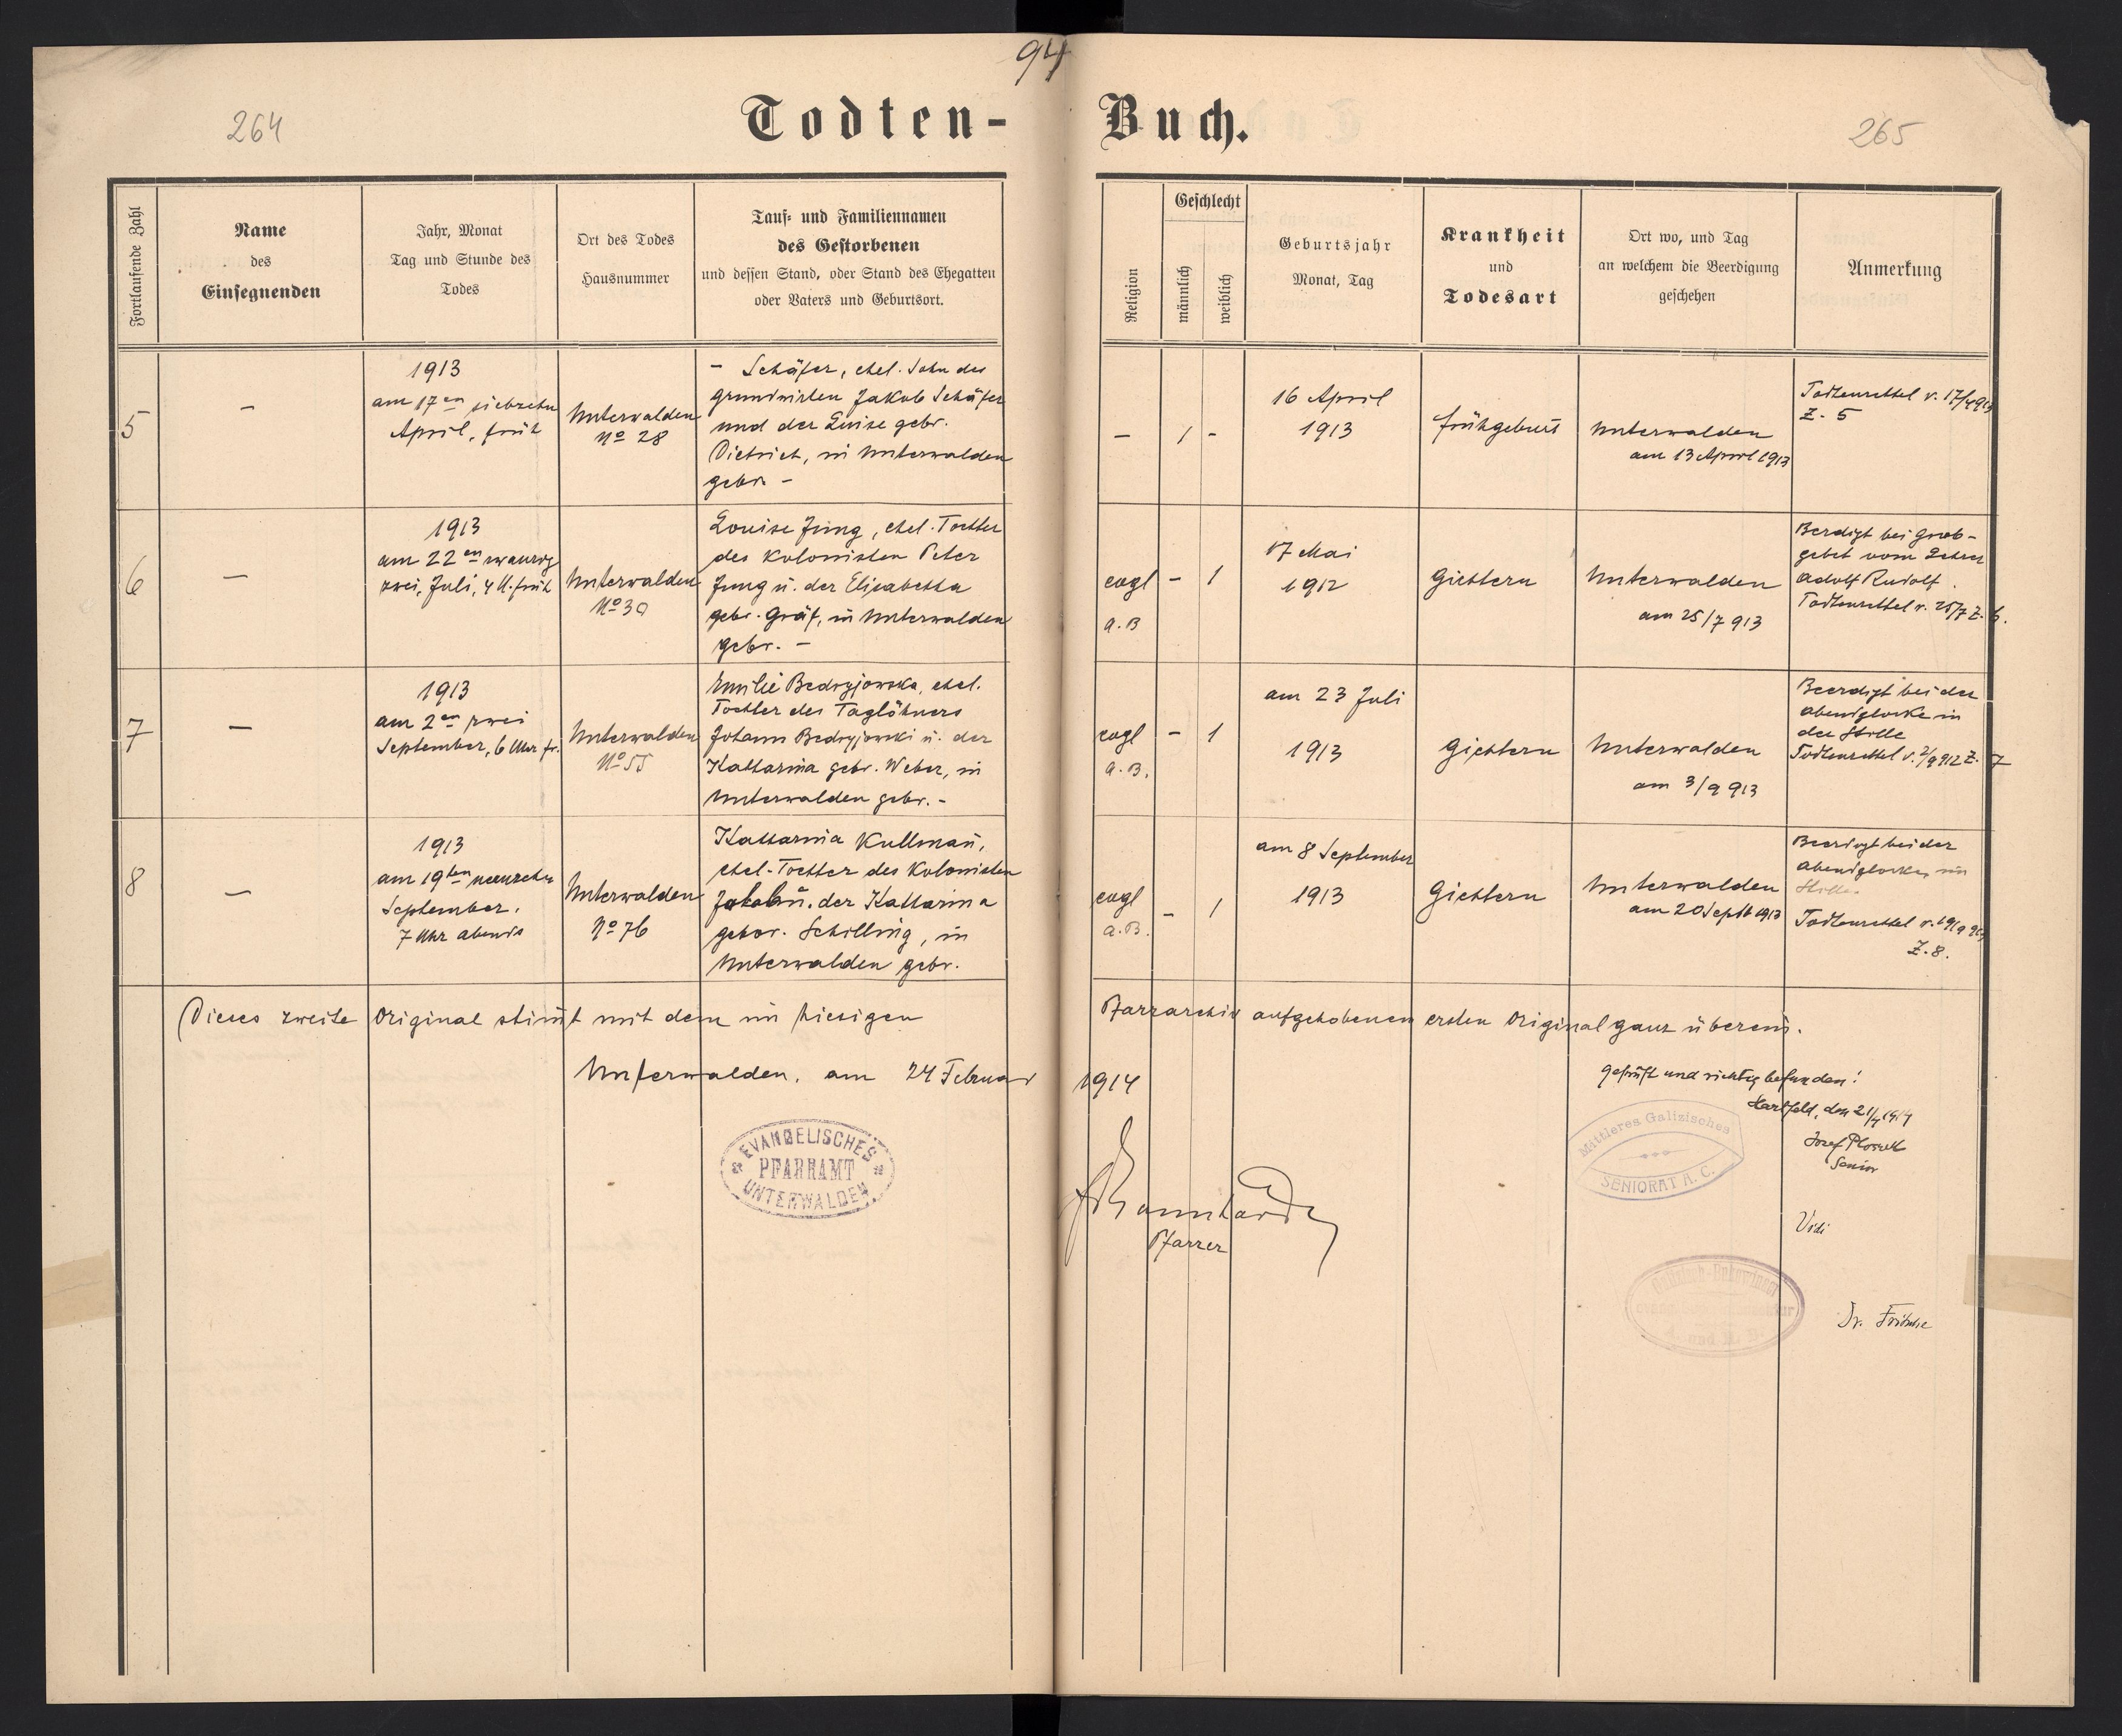 94
264
Todten-
Buch.
265
Fortlaufende Zahl
Name
des
Einsegnenden
Jahr, Monat
Tag und Stunde des
Todes
Ort des Todes
Hausnummer
Tauf- und Familiennamen
des Gestorbenen
und dessen Stand, oder Stand des Ehegatten
oder Vaters und Geburtsort.
Religion
Geschlecht
männlich
weiblich
Geburtsjahr
Monat, Tag
Krankheit
und
Todesart
Ort wo, und Tag
an welchem die Beerdigung
geschehen
Anmerkung
5
–
1913
am 17en siebzehn
April, früh
Unterwalden
No 28
– Schäfer, ehel. Sohn des
Grundwirten Jakob Schäfer
und der Luise gebr.
Dietrich, in Unterwalden
gebr. –
–
1 -
16 April
1913
Frühgeburt
Unterwalden
am 13 April 1913
Todtenzettel v. 17/4 913
Z. 5
6
–
1913
am 22en zwanzig
zwei, Juli, 4 U. früh
Unterwalden
No 30
Louise Jung, ehel. Tochter
des Kolonisten Peter
Jung u. der Elisabetha
gebr. Gräf, in Unterwalden
gebr. –
evgl
A.B
– 1
17 Mai
1912
Gichtern
Unterwalden
am 25/7 913
Berdigt bei Grab-
gebet vom Lehrer
Adolf Rudolf.
Todtenzettel v. 25/7 Z. 6.
7
–
1913
am 2en zwei
September, 6 Uhr fr.
Unterwalden
No 55
Emilie Bedryjowska, ehel.
Tochter des Taglöhners
Johann Bedryjowski u. der
Katharina gebr. Weber, in
Unterwalden gebr. -
evgl
A.B.
– 1
am 23 Juli
1913
Gichtern
Unterwalden
am 3/9 913
Beerdigt bei der
Abendglocke in
der Stille
Todtenzettel v. 2/9 912 Z. 7
8
–
1913
am 19ten neunzehn
September.
7 Uhr abends
Unterwalden
No 76
Katharina Kullman̄,
ehel. Tochter des Kolonisten
Jakob u. der Katharina
gebor. Schilling, in
Unterwalden gebr.
evgl
A.B.
– 1
am 8 September
1913
Gichtern
Unterwalden
am 20 Septb 1913
Beerdigt bei der
Abendglocke, in
Stille.
Todtenzettel v. 19/9 913
Z. 8.
Dieses zweite Original stim̄t mit dem im hiesigen Pfarrarchiv aufgehobenen ersten Original ganz überein.
Unterwalden, am 24 Februar 1914
EVANGELISCHES
PFARRAMT
UNTERWALDEN
Pfarrer
Geprüft und richtig befunden!
Hartfeld, den 21/4 1914
Josef
Senior
Mittleres Galizisches
SENIORAT A. C.
Vidi